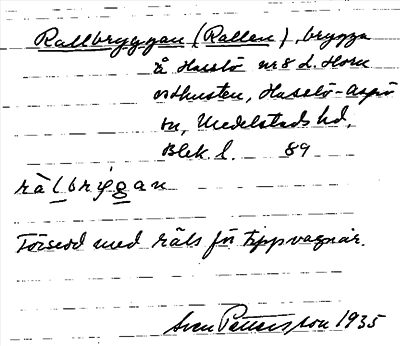 Rallbryggan (Rallen), brygga
å Haslö nr 8 L. Horn
ostkusten, Hasslö-Aspö
sn, Medelstads hd,
Blek. l. 89
rälbrigan
Försedd med räls för tippvagnar.
Sven Pettersson 1935